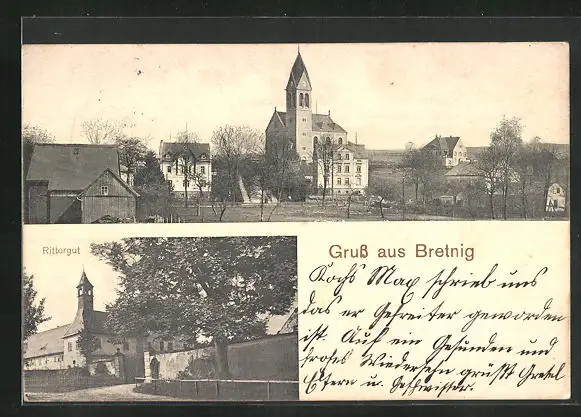 Rittergut
Gruß aus Bretnig
Kochs Max schrieb uns
das er Gefreiter geworden
ist. Auf ein Gesunden und
frohes Wiedersehn grüßt Gretel
Eltern u. Geschwister.